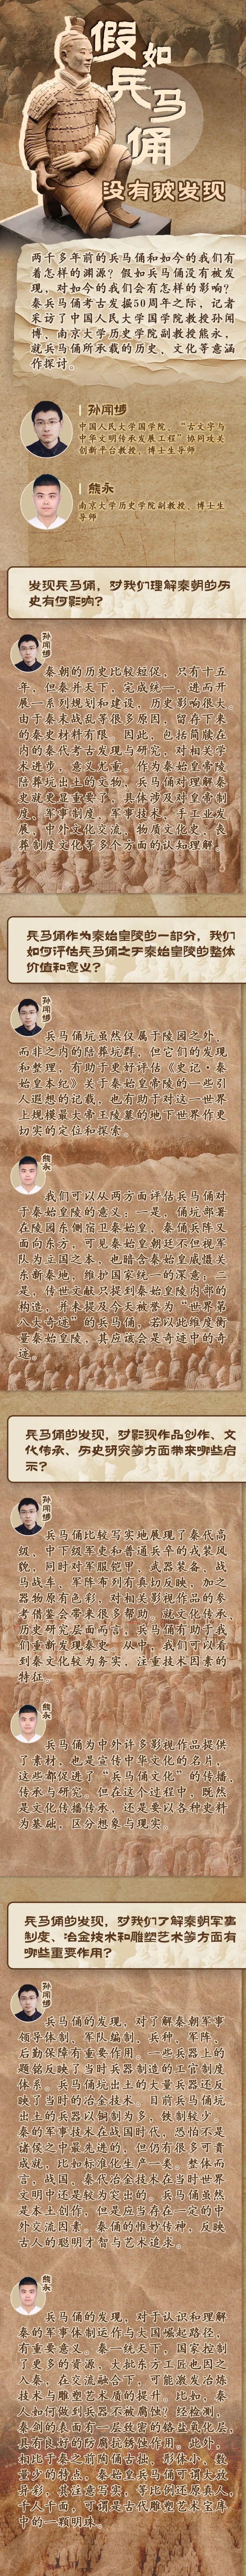 假如
兵马
俑
没有被发现
两千多年前的兵马俑和如今的我们有
着怎样的渊源？假如兵马俑没有被发
现，对如今的我们会有怎样的影响？
秦兵马俑考古发掘50周年之际，记者
采访了中国人民大学国学院教授孙闻
博、南京大学历史学院副教授熊永，
就兵马俑所承载的历史、文化等意涵
作探讨。
孙闻博
中国人民大学国学院、“古文字与
中华文明传承发展工程”协同攻关
创新平台教授、博士生导师
熊永
南京大学历史学院副教授、博士生
导师
发现兵马俑，对我们理解秦朝的历
史有何影响？
孙闻博
秦朝的历史比较短促，只有十五
年，但秦并天下，完成统一，进而开
展一系列规划和建设，历史影响很大。
由于秦末战乱等很多原因，留存下来
的秦史材料有限。因此，包括简牍在
内的秦代考古发现与研究，对相关学
术进步，意义尤重。作为秦始皇帝陵
陪葬坑出土的文物，兵马俑对理解秦
史就更显重要了，具体涉及对皇帝制
度、军事制度、军事技术、手工业发
展、中外文化交流、物质文化史、丧
葬制度文化等多个方面的认知理解。
兵马俑作为秦始皇陵的一部分，我们
如何评估兵马俑之于秦始皇陵的整体
价值和意义？
孙闻博
兵马俑坑虽然仅属于陵园之外，
而非之内的陪葬坑群，但它们的发现
和整理，有助于更好评估《史记·秦
始皇本纪》关于秦始皇帝陵的一些引
人遐想的记载，也有助于对这一世界
上规模最大帝王陵墓的地下世界作更
切实的定位和探索。
熊永
我们可以从两方面评估兵马俑对
于秦始皇陵的意义：一是，俑坑部署
在陵园东侧宿卫秦始皇，秦俑兵阵又
面向东方，可见秦始皇朝廷不但视军
队为立国之本，也暗含秦始皇威慑关
东新秦地，维护国家统一的深意；二
是，传世文献只提到秦始皇陵内部的
构造，并未提及今天被誉为“世界第
八大奇迹”的兵马俑，若以此维度衡
量秦始皇陵，其应该会是奇迹中的奇
迹。
兵马俑的发现，对影视作品创作、文
化传承、历史研究等方面带来哪些启
示？
孙闻博
兵马俑比较写实地展现了秦代高
级、中下级军吏和普通兵卒的戎装风
貌，同时对军服铠甲、武器装备、战
马战车，军阵布列有真切反映，加之
器物原有色彩，对相关影视作品的参
考借鉴会带来很多帮助。就文化传承、
历史研究层面而言，兵马俑有助于我
们重新发现秦史。从中，我们可以看
到秦文化较为务实，注重技术因素的
特征。
熊永
兵马俑为中外许多影视作品提供
了素材，也是宣传中华文化的名片，
这些都促进了“兵马俑文化”的传播，
传承与研究。但在这个过程中，既然
是文化传播传承，还是要以各种史料
为基础，区分想象与现实。
兵马俑的发现，对我们了解秦朝军事
制度、冶金技术和雕塑艺术等方面有
哪些重要作用？
孙闻博
兵马俑的发现，对了解秦朝军事
领导体制、军队编制、兵种、军阵、
后勤保障有重要作用。一些兵器上的
题铭反映了当时兵器制造的工官制度
体系。兵马俑坑出土的大量兵器还反
映了当时的冶金技术。目前兵马俑坑
出土的兵器以铜制为多，铁制较少。
秦的军事技术在战国时代，恐怕不是
诸侯之中最先进的，但仍有很多可贵
成就，比如标准化生产一类。整体而
言，战国、秦代冶金技术在当时世界
文明中还是较为突出的。兵马俑虽然
是本土创作，但是应当存在一定的中
外交流因素。秦俑的惟妙传神，反映
古人的聪明才智与艺术追求。
熊永
兵马俑的发现，对于认识和理解
秦的军事体制运作与大国崛起路径，
有重要意义。秦一统天下，国家控制
了更多的资源，大批东方工匠也因之
入秦，在交流融合下，可能激发冶炼
技术与雕塑艺术质的提升。比如，秦
人如何做到兵器不被腐蚀？经检测，
秦剑的表面有一层致密的铬盐氧化层，
具有良好的防腐抗锈蚀作用。此外，
相比于秦之前陶俑古拙、形体小、数
量少的特点，秦始皇兵马俑可谓大放
异彩，其注意写实，等比例还原真人，
千人千面，可谓是古代雕塑艺术宝库
中的一颗明珠。